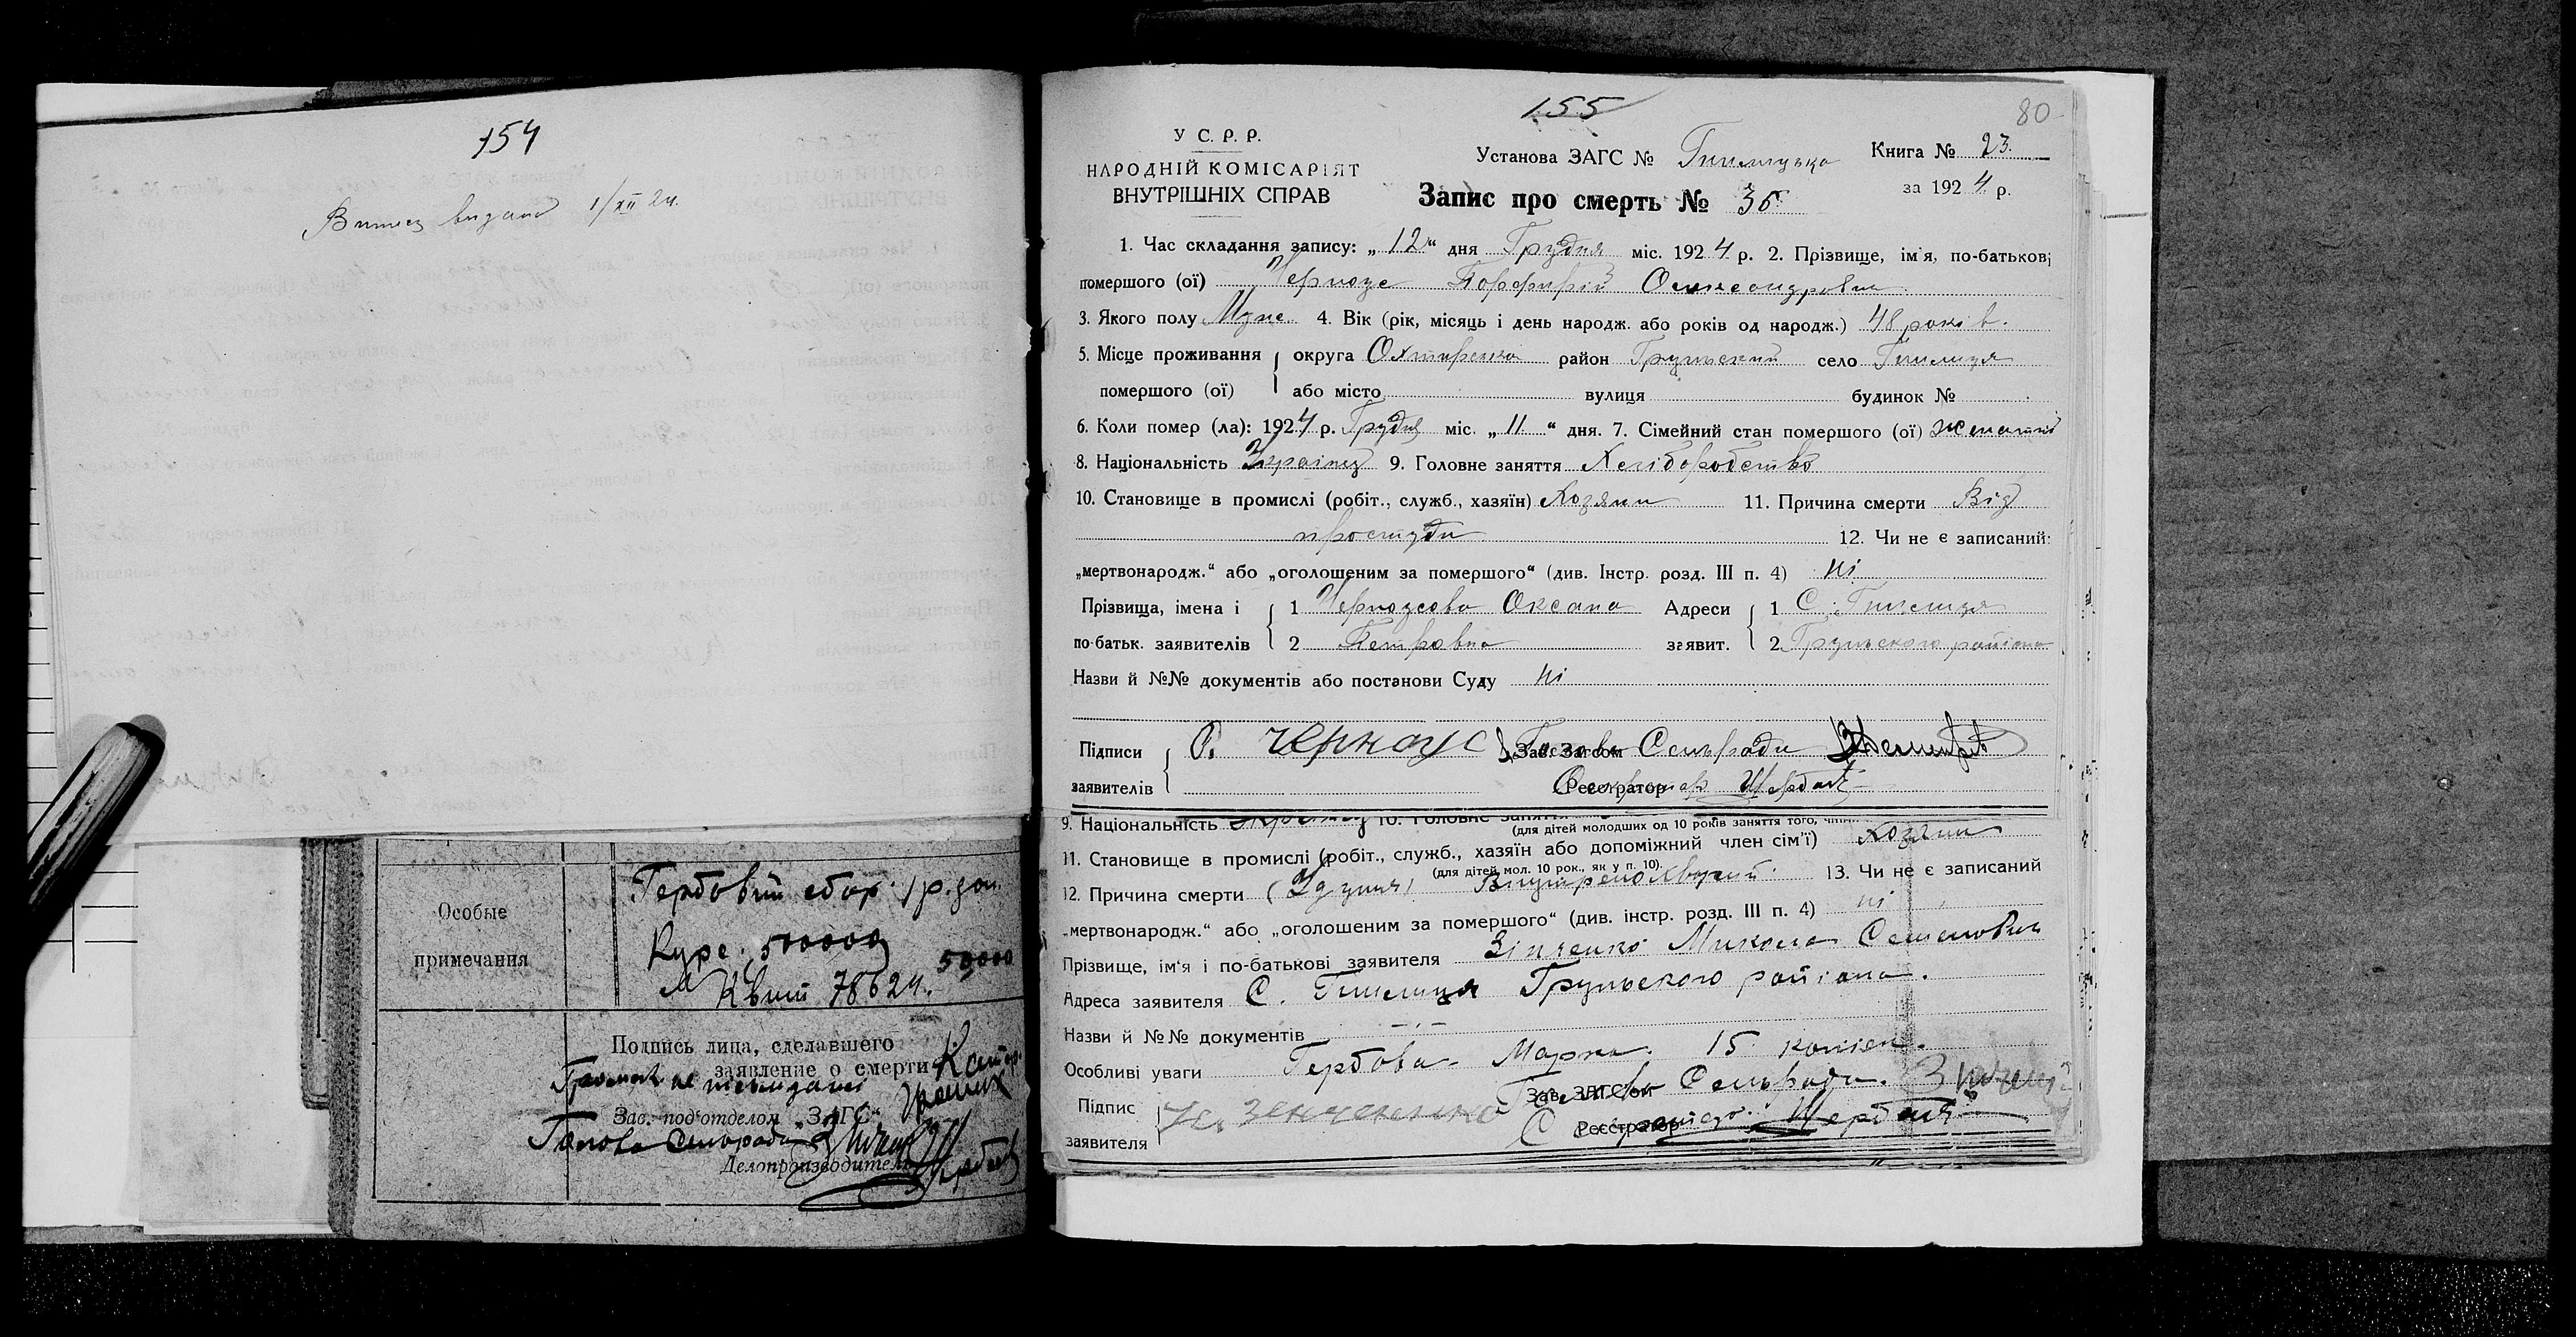 154
Витяг видано 1/XII 24.
Особые
примечания
Гербовий сбор. 1 р. зол.
Курс. 500000
Квит 78624. 50000
Подпись лица, сделавшего
заявление о смерти
Зав. под'отделом „ЗАГС“
Голова Сельради
Делопроизводитель
155
80
У. С. Р. Р.
НАРОДНІЙ КОМІСАРІЯТ
ВНУТРІШНІХ СПРАВ
Установа ЗАГС №
Книга № 23.
за 1924 р.
Запис про смерть №
1. Час складання запису: „12“ дня Грудня міс. 1924 р. 2. Прізвище, ім'я, по-батькові
помершого (ої) Черноус Порфирій
3. Якого полу Муже. 4. Вік (рік, місяць і день народж. або років од народж.) 48 років.
5. Місце проживання округа район Грунський село
помершого (ої) або місто вулиця будинок №
6. Коли помер (ла): 1924 р. Грудня міс. „11“ дня. 7. Сімейний стан помершого (ої) женатий
8. Національність Українец 9. Головне заняття Хліборобство
10. Становище в промислі (робіт., служб., хазяїн) Хозяин 11. Причина смерти Від
простуди 12. Чи не є записаний:
„мертвонародж.“ або „оголошеним за помершого“ (див. Інстр. розд. III п. 4) ні
Прізвища, імена і 1 Черноусова Оксана Адреси 1 С.
по-батьк. заявителів 2 Петровна заявит. 2 Грунського району
Назви й №№ документів або постанови Суду ні
Підписи О. Черноус Зав. Загсом Голова Сельради
заявителів Реєстратор Секретар Щербак
9. Національність 10. Головне заняття
(для дітей молодших од 10 років заняття того,
11. Становище в промислі (робіт., служб., хазяїн або допоміжний член сім'ї) Хозяин
(для дітей мол. 10 рок., як у п. 10).
12. Причина смерти 13. Чи не є записаний
„мертвонародж.“ або „оголошеним за помершого“ (див. інстр. розд. III п. 4) ні
Прізвище, ім'я і по-батькові заявителя Зінченко Микола Семенович
Адреса заявителя С. Грунського району.
Назви й №№ документів
Особливі уваги Гербова Марка. 15 копієк.
Підпис Зав. ЗАГС'ом Голова Сельради.
заявителя Реєстратор Щербак